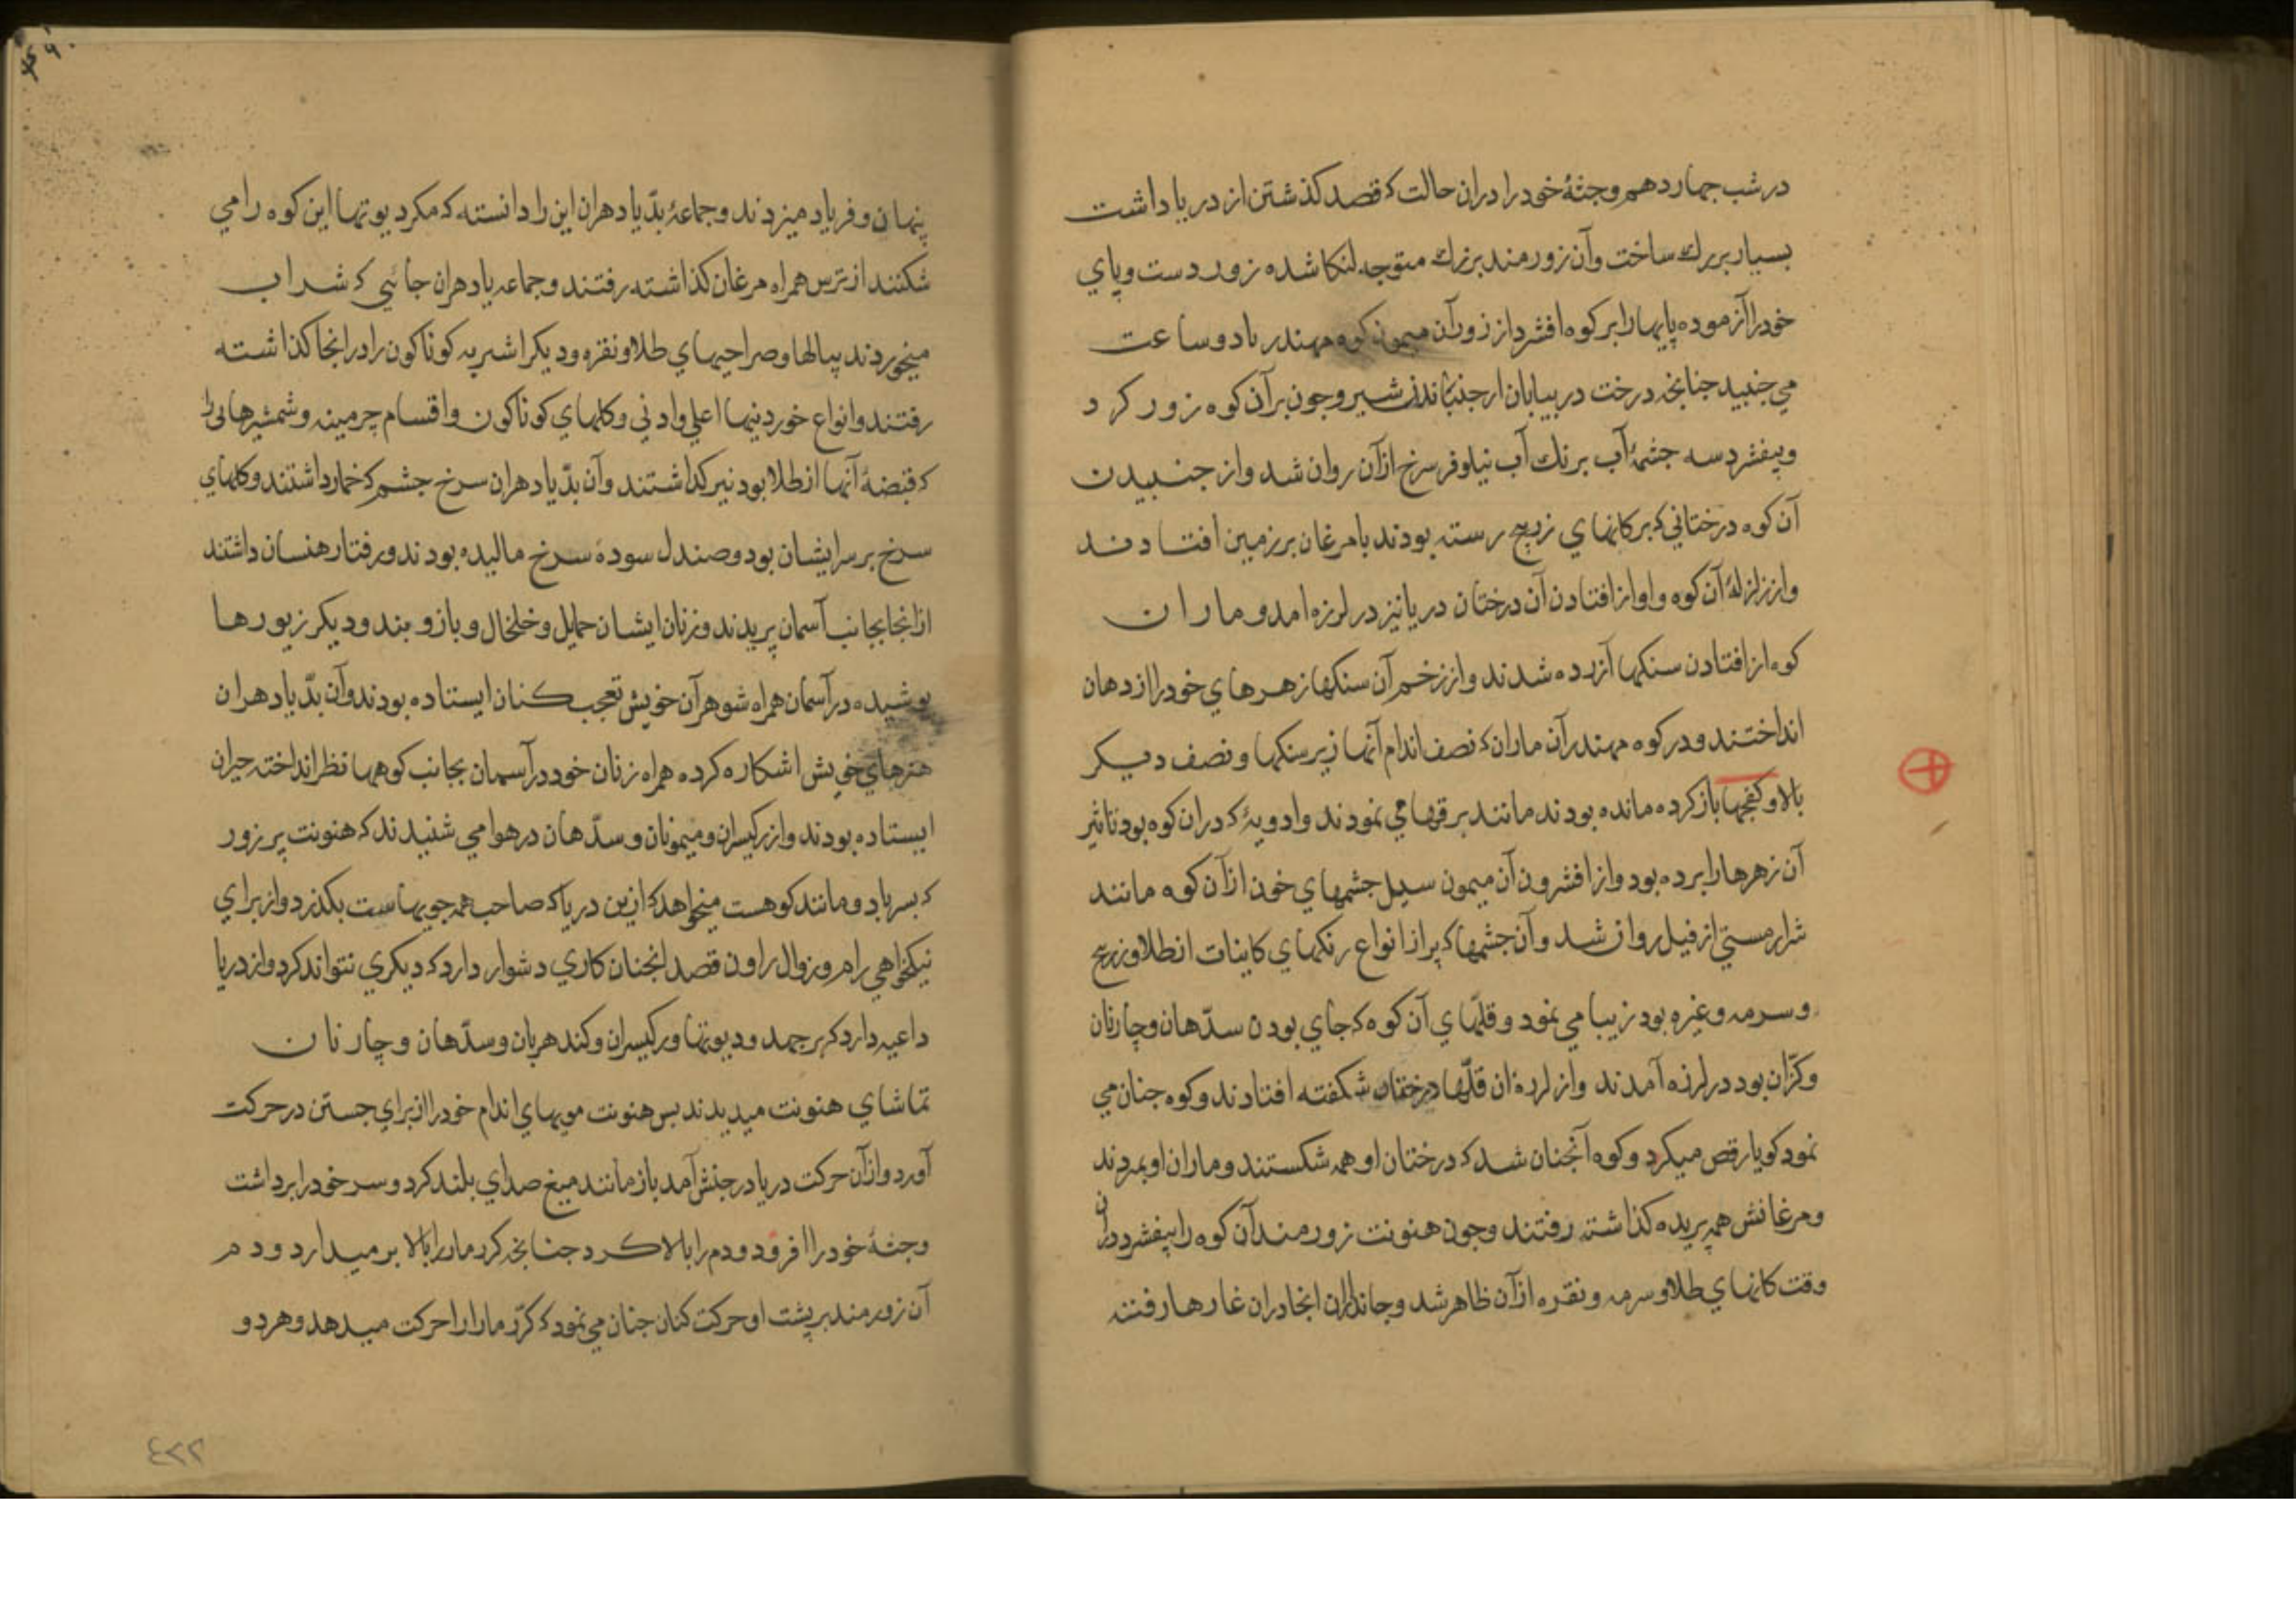 در شب چهاردهم وجثهٔ خود را دران حالت که قصد کذشتن از دریا داشت
بسیار بزرك ساخت وآن زورمند بزرك متوجه لنکا شده زور دست وپاي
خود را آزموده پایها را بر کوه افشرد از زور آن میمون کوه مهندر تا دو ساعت
مي جنبید جنانچه درخت در بیابان از جنباندن شیر وجون بر آن کوه زور کرد
وبیفشرد سه جشمهٔ آب برنك آب نیلوفر سرخ از آن روان شد واز جنبیدن
آن کوه درختاني که بر کانهاي زرنیخ رسته بودند با مرغان بر زمین افتادند
واز زلزلهٔ آن کوه واواز افتادن آن درختان دریا نیز در لرزه امد وماران
کوه از افتادن سنکها آزرده شدند واز زخم آن سنکها زهرهاي خود را از دهان
انداختند ودر کوه مهندر آن ماران که نصف اندام آنها زیر سنکها ونصف دیکر
بالا وکفجها باز کرده مانده بودند مانند برقها مي نمودند وادویهٔ که دران کوه بود تاثیر
آن زهرها را برده بود واز افشردن آن میمون سیل جشمهاي خون از آن کوه مانند
شرار مستي از فیل روان شد وآن جشمها که پر از انواع رنکهاي کاینات از طلا وزرنیخ
وسرمه وغیره بود زیبا مي نمود وقلهاي آن کوه که جاي بودن سدّهان وچارنان
وکرّان بود در لرزه آمدند واز لرزهٔ ان قلّها درختان شکفته افتادند وکوه جنان مي
نمود کویا رقص میکرد وکوه آنجنان شد که درختان او همه شکستند وماران او بمردند
ومرغانش همه پریده کذاشته رفتند وجون هنونت زورمند آن کوه را بیفشرد دران
وقت کانهاي طلا وسرمه ونقره از آن ظاهر شد وجانداران انجا دران غارها رفته
پنهان وفریاد میزدند وجماعهٔ بدّیادهران این را دانسته که مکر دیوتها این کوه را مي
شکنند از ترس همراه مرغان کذاشته رفتند وجماعه یادهران جائي که شراب
میخوردند پیالها وصراحیهاي طلا ونقره ودیکر اشربه کوناکون را در انجا کذاشته
رفتند وانواع خوردنیها اعلي وادني وکلهاي کوناکون واقسام چرمینه وشمشیرهائی را
که قبضهٔ آنها از طلا بود نیز کذاشتند وآن بدّیادهران سرخ جشم که خمار داشتند وکلهاي
سرخ بر سر ایشان بود وصندل سودهٔ سرخ مالیده بودند ورفتار هنسان داشتند
از انجا بجانب آسمان پریدند وزنان ایشان حمایل وخلخال وبازو بند ودیکر زیورها
پوشیده در آسمان همراه شوهر آن خویش تعجب کنان ایستاده بودند وآن بدّیادهران
هنرهاي خویش اشکاره کرده همراه زنان خود در آسمان بجانب کوهها نظر انداخته حیران
ایستاده بودند واز رکیسران ومیمونان وسدّهان در هوا مي شنیدند که هنونت پر زور
که پسر باد ومانند کوهست میخواهد که ازین دریا که صاحب همه جویهاست بکذرد واز براي
نیکخواهي رام وزوال راون قصد انجنان کاري دشوار دارد که دیکري نتواند کرد واز دریا
داعیه دارد که بر جهد ودیوتها ورکیسران وکندهربان وسدّهان وچارنان
تماشاي هنونت میدیدند بس هنونت مویهاي اندام خود را از براي جستن در حرکت
آورد واز آن حرکت دریا در جنبش آمد باز مانند میغ صداي بلند کرد وسر خود را برداشت
وجثهٔ خود را افزود ودم را بالا کرد جنانچه کرد مار را بالا بر میدارد ودم
آن زورمند بر پشت او حرکت کنان جنان مي نمود که کرّد مار را حرکت میدهد وهر دو
٤٢٢